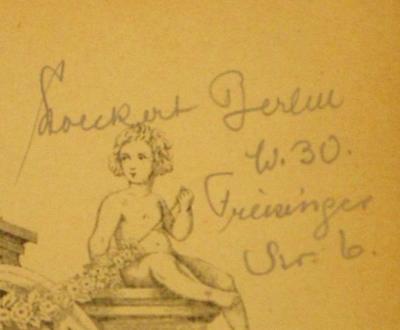 Stoeckert Berlin
W. 30.
Freisinger
Str. 6.